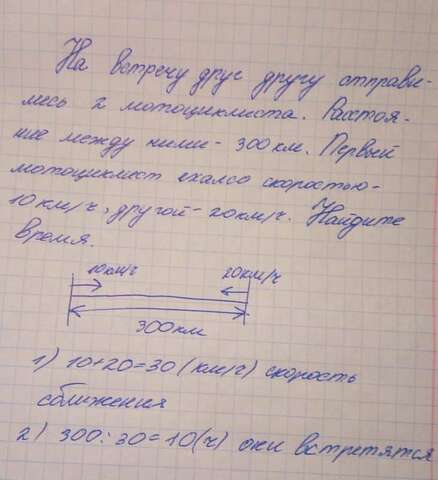 На встречу друг другу отправи-
лись 2 мотоциклиста. Расстоя-
ние между ними - 300 км. Первый
мотоциклист ехал со скоростью -
10 км/ч, другой - 20 км/ч. Найдите
время.
10 км/ч 20 км/ч
300 км
1) 10+20=30 (км/ч) скорость
сближения
2) 300:30=10(ч) они встретятся